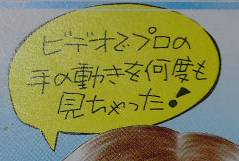 ビデオでプロの
手の動きを何度も
見ちゃった!